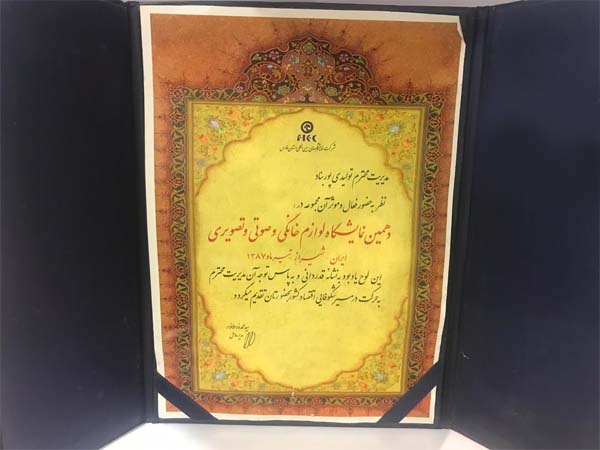 FIEC
شرکت نمایشگاههای بین المللی استان فارس
مدیریت محترم تولیدی پوربناد
نظر به حضور فعال و موثر آن مجموعه در:
دهمین نمایشگاه لوازم خانگی و صوتی و تصویری
ایران - شیراز - تیرماه ۱۳۸۷
این لوح یادبود به نشانه قدردانی و به پاس توجه آن مدیریت محترم
به حرکت در مسیر شکوفایی اقتصاد کشور بحضورتان تقدیم میگردد
مدیرعامل